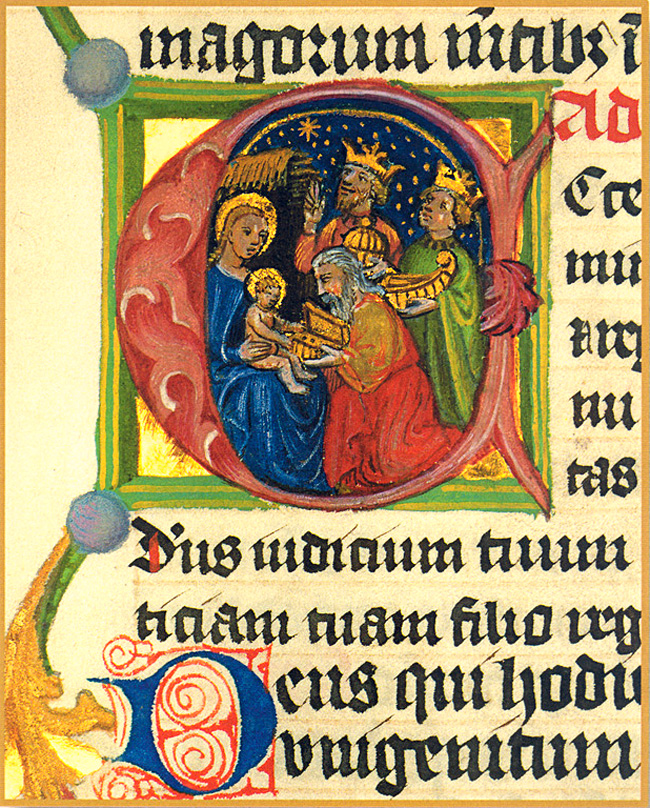 magorum m̄tibꝫ
ad
Cce
nu
tas
D'us iudicium tuum
ticiam tuam filio reg
Deus qui hodi
vnigenitum